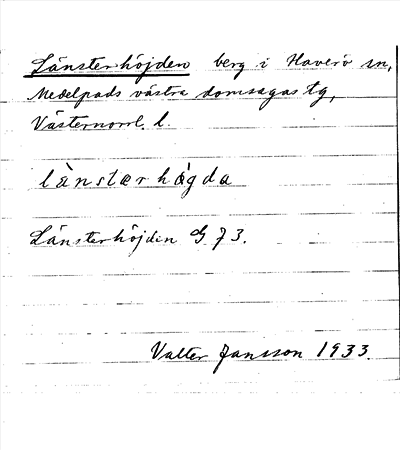 Länsterhöjden berg i Haverö sn,
Medelpads västra domsagas tg,
Västernorrl. l.
lànstær hǿgda
Länsterhöjdin G 73.
Valter Jansson 1933.